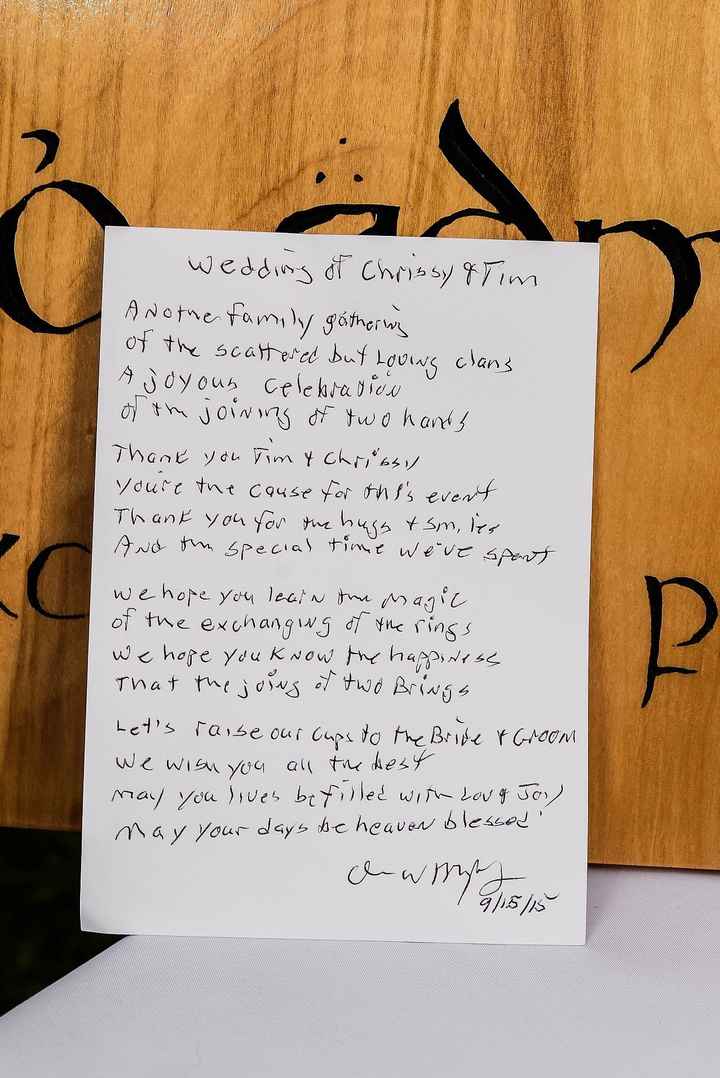 Wedding of Chrissy & Tim
Anothe family gathering
of the scattered but Loving clans
A joyous celebration
of the joining of two hands
Thank you Tim & Chrissy
you're the cause for this event
Thank you for the hugs & smiles
And the special time we've spent
We hope you learn the magic
of the exchanging of the rings
We hope you know the happiness
That the joing of two Brings
Let's raise our cups to the Bride & Groom
We wish you all the best
May you lives be filled with Love & Joy
May your days be heaven blessed!
9/15/15